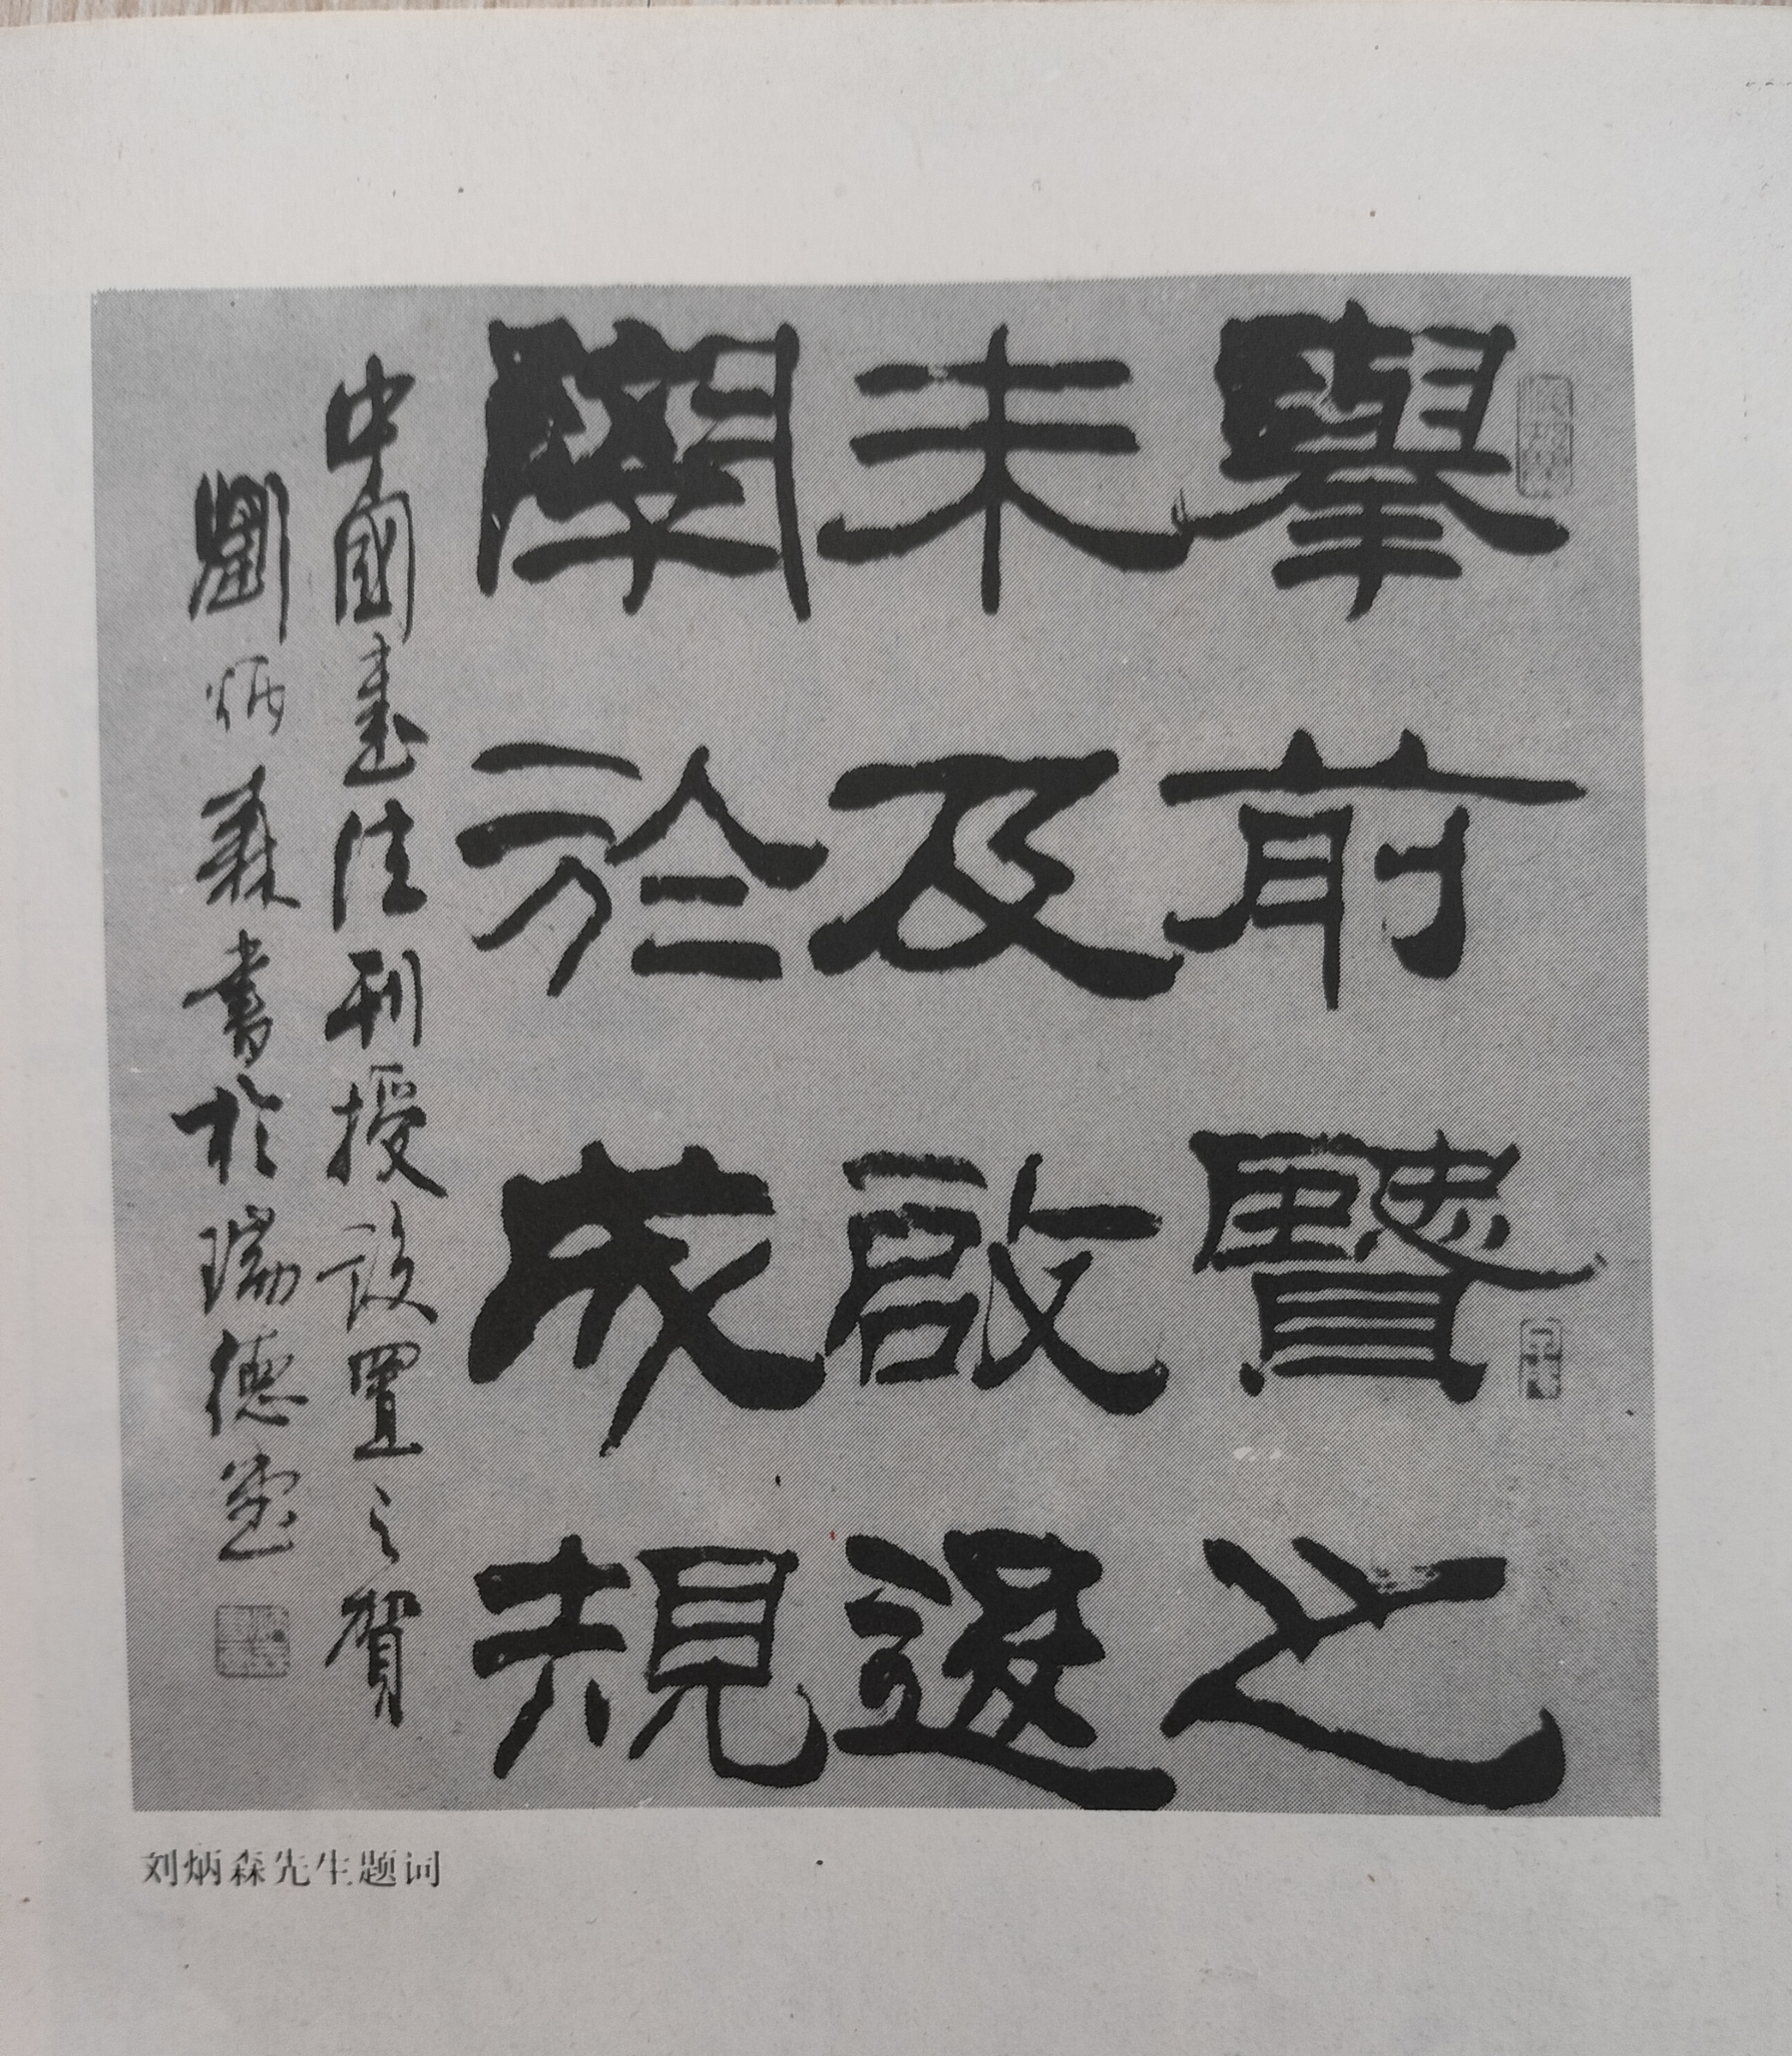 舉前賢之
未及啟後
學於成規
中國書法刊授設置之賀
劉炳森書於瑞德堂
刘炳森先生题词